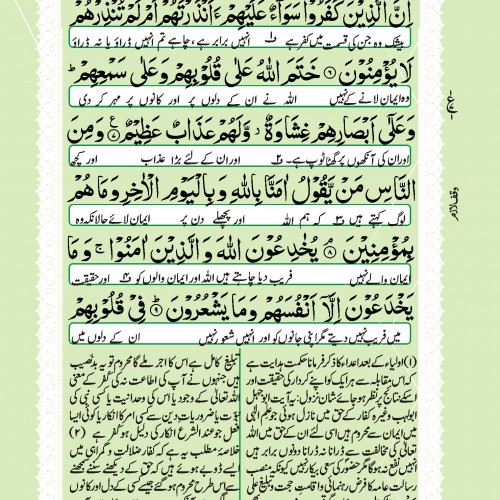 اِنَّ الَّذِيْنَ كَفَرُوْا سَوَآءٌ عَلَيْهِمْ ءَاَنْذَرْتَهُمْ اَمْ لَمْ تُنْذِرْهُمْ
بیشک وہ جن کی قسمت میں کفر ہے ۱ انہیں برابر ہے، چاہے تم انہیں ڈراؤ یا نہ ڈراؤ
لَا يُؤْمِنُوْنَ ۶ خَتَمَ اللّٰهُ عَلٰى قُلُوْبِهِمْ وَعَلٰى سَمْعِهِمْ ط
وہ ایمان لانے کے نہیں اللہ نے ان کے دلوں پر اور کانوں پر مہر کر دی
وَعَلٰٓى اَبْصَارِهِمْ غِشَاوَةٌ ز وَّلَهُمْ عَذَابٌ عَظِيْمٌ ۷ وَمِنَ
اور ان کی آنکھوں پر گھٹا ٹوپ ہے۔ ۲ اور ان کے لئے بڑا عذاب اور کچھ
النَّاسِ مَنْ يَّقُوْلُ اٰمَنَّا بِاللّٰهِ وَبِالْيَوْمِ الْاٰخِرِ وَمَا هُمْ
لوگ کہتے ہیں ۳ کہ ہم اللہ اور پچھلے دن پر ایمان لائے حالانکہ وہ
بِمُؤْمِنِيْنَ ۸ يُخٰدِعُوْنَ اللّٰهَ وَالَّذِيْنَ اٰمَنُوْا ج وَمَا
ایمان والے نہیں فریب دیا چاہتے ہیں اللہ اور ایمان والوں کو ۴ اور حقیقت
يَخْدَعُوْنَ اِلَّآ اَنْفُسَهُمْ وَمَا يَشْعُرُوْنَ ۹ فِيْ قُلُوْبِهِمْ
میں فریب نہیں دیتے مگر اپنی جانوں کو اور انہیں شعور نہیں ان کے دلوں میں
وقف لازم
(۱) اولیاء کے بعد اعداء کا ذکر فرمانا حکمت ہدایت ہے
کہ اس مقابلہ سے ہر ایک کو اپنے کردار کی حقیقت اور
اس کے نتائج پر نظر ہو جائے شان نزول: یہ آیت ابوجہل
ابولہب وغیرہ کفار کے حق میں نازل ہوئی جو علم الٰہی
میں ایمان سے محروم ہیں اسی لئے ان کے حق میں اللہ
تعالٰی کی مخالفت سے ڈرانا نہ ڈرانا دونوں برابر ہیں
انہیں نفع نہ ہوگا مگر حضور کی سعی بیکار نہیں کیونکہ منصب
رسالت عامہ کا فرض رہنمائی و اقامت حجت و تبلیغ علی
تبلیغ کامل ہے اس کا اجر ملے گا محروم تو یہ بدنصیب
ہیں جنہوں نے آپ کی اطاعت نہ کی کفر کے معنی
اللہ تعالیٰ کے وجود یا اس کی وحدانیت یا کسی نبی کی
نبوت یا ضروریات دین سے کسی امر کا انکار یا کوئی ایسا
فعل جو عند الشرع انکار کی دلیل ہو کفر ہے (۲)
خلاصہ مطلب یہ ہے کہ کفار ضلالت و گمراہی میں
ایسے ڈوبے ہوئے ہیں کہ حق کے دیکھنے سننے سمجھنے
سے اس طرح محروم ہو گئے جیسے کسی کے دل اور کانوں